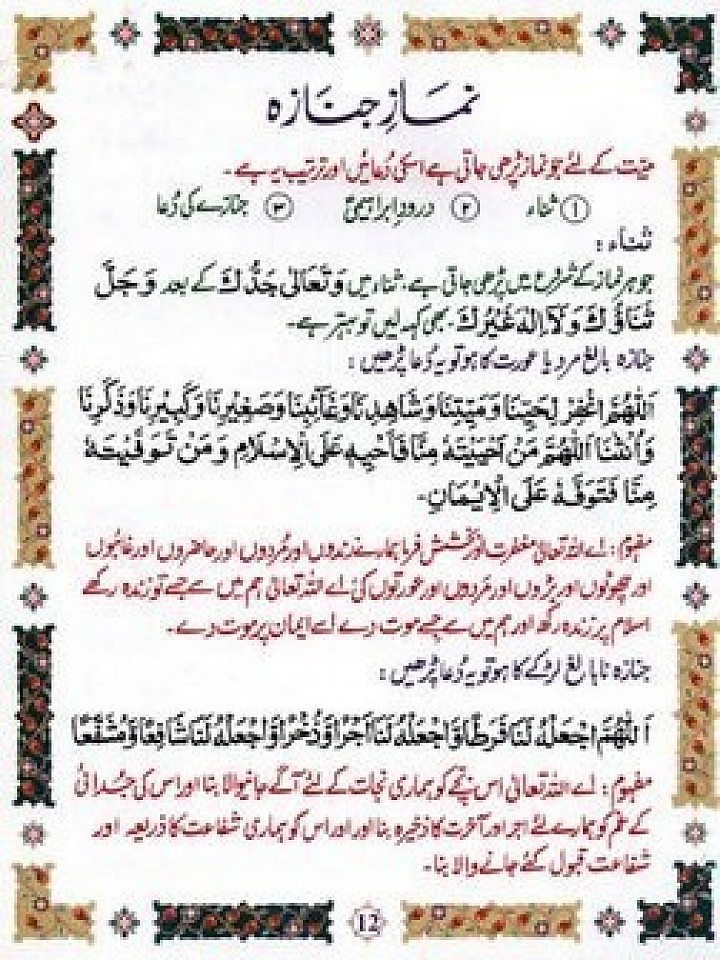 نمازِ جنازہ
میّت کے لئے جو نماز پڑھی جاتی ہے اسکی دُعائیں اور ترتیب یہ ہے۔
① ثناء ② درودِ ابراہیمیؑ ③ جنازے کی دُعا
ثناء :
جو ہر نماز کے شروع میں پڑھی جاتی ہے۔ ثناء میں وَتَعَالٰی جَدُّكَ کے بعد وَجَلَّ
ثَنَاؤُكَ وَلَآ اِلٰهَ غَيْرُكَ۔ بھی کہہ لیں تو بہتر ہے۔
جنازہ بالغ مرد یا عورت کا ہو تو یہ دُعا پڑھیں :
اَللّٰهُمَّ اغْفِرْ لِحَيِّنَا وَمَيِّتِنَا وَشَاهِدِنَا وَغَآئِبِنَا وَصَغِيْرِنَا وَكَبِيْرِنَا وَذَكَرِنَا
وَاُنْثٰنَا اَللّٰهُمَّ مَنْ اَحْيَيْتَهٗ مِنَّا فَاَحْيِهٖ عَلَى الْاِسْلَامِ وَمَنْ تَوَفَّيْتَهٗ
مِنَّا فَتَوَفَّهٗ عَلَى الْاِيْمَانِ۔
مفہوم : اے اللہ تعالیٰ مغفرت اور بخشش فرما ہمارے زندوں اور مُردوں اور حاضروں اور غائبوں
اور چھوٹوں اور بڑوں اور مَردوں اور عورتوں کی اے اللہ تعالیٰ ہم میں سے جسے تو زندہ رکھے
اسلام پر زندہ رکھ اور ہم میں سے جسے موت دے اسے ایمان پر موت دے۔
جنازہ نابالغ لڑکے کا ہو تو یہ دُعا پڑھیں :
اَللّٰهُمَّ اجْعَلْهُ لَنَا فَرَطًا وَّاجْعَلْهُ لَنَا اَجْرًا وَّذُخْرًا وَّاجْعَلْهُ لَنَا شَافِعًا وَّمُشَفَّعًا
مفہوم : اے اللہ تعالیٰ اس بچّے کو ہماری نجات کے لئے آگے جانیوالا بنا اور اس کی جُدائی
کے غم کو ہمارے لئے اجر اور آخرت کا ذخیرہ بنا اور اور اس کو ہماری شفاعت کا ذریعہ اور
شفاعت قبول کئے جانے والا بنا۔
12